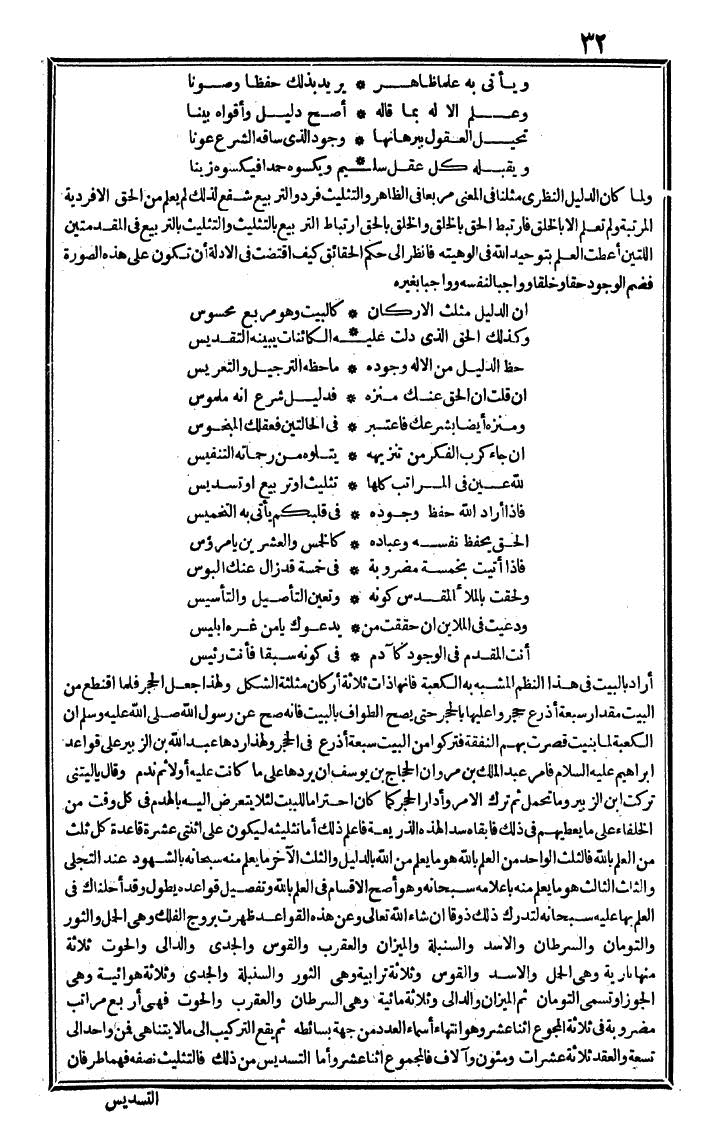 ٣٢
ويأتى به علما ظاهر * يريد بذلك حفظا وصونا
وعلم الاله بما قاله * أصح دليل وأقواه بينا
تحيل العقول ببرهانها * وجود الذى ساقه الشرع عونا
ويقبله كل عقل سليم * ويكسوه حمدا فيكسوه زينا
ولما كان الدليل النظرى مثلثا فى المعنى مربعا فى الظاهر والتثليث فرد والتربيع شفع لذلك لم يعلم من الحق الا فردية
المرتبة ولم تعلم الا بالخلق فارتبط الحق بالخلق والخلق بالحق ارتباط التربيع بالتثليث والتثليث بالتربيع فى المقدمتين
اللتين أعطت العلم بتوحيد الله فى الوهيته فانظر الى حكم الحقائق كيف اقتضت فى الادلة أن تكون على هذه الصورة
فضم الوجود حقا وخلقا وواجبا لنفسه وواجبا بغيره
ان الدليل مثلث الاركان * كالبيت وهو مربع محسوس
وكذلك الحق الذى دلت عليـ * ـه الكائنات يبينه التقديس
حظ الدليل من الاله وجوده * ما حظه الترحيل والتعريس
ان قلت ان الحق عنك منزه * فدليل شرع انه ملموس
ومنزه أيضا بشرعك فاعتبر * فى الحالتين فعقلك المبخوس
ان جاء كرب الفكر من تنزيهه * يتلوه من رحماته التنفيس
لله عين فى المراتب كلها * تثليث اوتربيع اوتسديس
فاذا أراد الله حفظ وجوده * فى قلبكم يأتى به التخميس
الحق يحفظ نفسه وعباده * كالخمس والعشرين يا مرؤس
فاذا أتيت بخمسة مضروبة * فى خمسة قد زال عنك البوس
ولحقت بالملأ المقدس كونه * وتعين التأصيل والتأسيس
ودعيت فى الملاين ان حققت من * يدعوك يا من غره ابليس
أنت المقدم فى الوجود كآدم * فى كونه سبقا فأنت رئيس
أراد بالبيت فى هذا النظم المشبه به الكعبة فانها ذات ثلاثة أركان مثلثة الشكل ولهذا جعل الحجر فلما اقتطع من
البيت مقدار سبعة أذرع حجر واعليها بالحجر حتى يصح الطواف بالبيت فانه صح عن رسول الله صلى الله عليه وسلم ان
الكعبة لما بنيت قصرت بهم النفقة فتركوا من البيت سبعة أذرع فى الحجر ولهذا ردها عبد الله بن الزبير على قواعد
ابراهيم عليه السلام فامر عبد الملك بن مروان الحجاج بن يوسف ان يردها على ما كانت عليه أولا ثم ندم وقال ياليتنى
تركت ابن الزبير وما تحمل ثم ترك الامر وأدار الحجر كما كان احتراما للبيت لئلا يتعرض اليه بالهدم فى كل وقت من
الخلفاء على ما يعطيهم فى ذلك فابقاه سد الهذه الذريعة فاعلم ذلك أما تثليثه ليكون على اثنتى عشرة قاعدة كل ثلث
من العلم بالله فالثلث الواحد من العلم بالله هو ما يعلم من الله بالدليل والثلث الآخر ما يعلم منه سبحانه بالشهود عند التجلى
والثلث الثالث هو ما يعلم منه باعلامه سبحانه وهو أصح الاقسام فى العلم بالله وتفصيل قواعده يطول وقد أحلناك فى
العلم بها عليه سبحانه لتدرك ذلك ذوقا ان شاء الله تعالى وعن هذه القواعد ظهرت بروج الفلك وهى الحمل والثور
والتومان والسرطان والاسد والسنبلة والميزان والعقرب والقوس والجدى والدالى والحوت ثلاثة
منها نارية وهى الحمل والاسد والقوس وثلاثة ترابية وهى الثور والسنبلة والجدى وثلاثة هوائية وهى
الجوزا وتسمى التومان ثم الميزان والدالى وثلاثة مائية وهى السرطان والعقرب والحوت فهى أربع مراتب
مضروبة فى ثلاثة المجموع اثنا عشر وهو انتهاء أسماء العدد من جهة بسائطه ثم يقع التركيب الى ما لا يتناهى فن واحد الى
تسعة والعقد ثلاثة عشرات ومئون وآلاف فالمجموع اثنا عشر وأما التسديس من ذلك فالتثليث نصفه فهما طرفان
التسديس